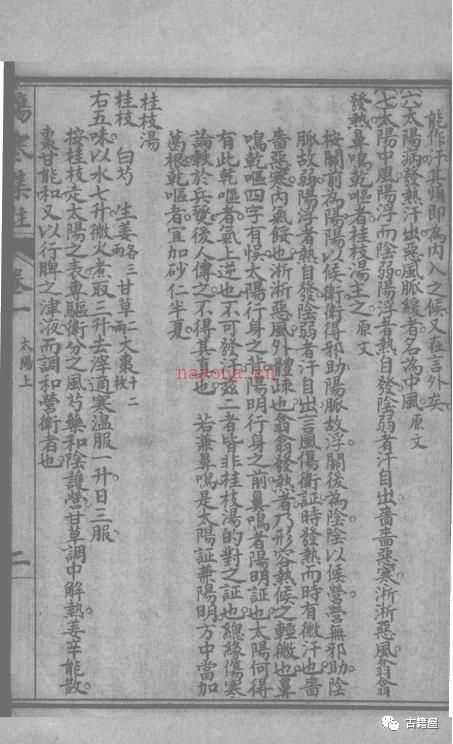 能作汗其煩即為內入之候又在言外矣
(六)太陽病發熱汗出惡風脈緩者名為中風 原文
(七)太陽中風陽浮而陰弱陽浮者熱自發陰弱者汗自出嗇嗇惡寒淅淅惡風翕翕
發熱鼻鳴乾嘔者桂枝湯主之 原文
按關前為陽陽以候衛衛得邪助陽脈故浮關後為陰陰以候營營無邪助陰
脈故弱陽浮者熱自發陰弱者汗自出言風傷衛証時發熱而時有微汗也嗇
嗇惡寒內氣餒也淅淅惡風外體疎也翕翕發熱者乃形容熱候之輕微也鼻
鳴乾嘔四字有悞太陽行身之背陽明行身之前鼻鳴者陽明証也太陽何得
有此乾嘔者氣上逆也不可發汗茲二者皆非桂枝湯的對之証也總緣傷寒
論軼於兵燹後人傳之不得其真也 若兼鼻鳴是太陽証兼陽明方中當加
葛根乾嘔者宜加砂仁半夏
桂枝湯
桂枝 白芍 生姜各三兩 甘草二兩 大棗十二枚
右五味以水七升微火煮取三升去滓適寒溫服一升日三服
按桂枝走太陽之表專驅衛分之風芍藥和陰護營甘草調中解熱姜辛能散
棗甘能和又以行脾之津液而調和營衛者也
傷寒集註 卷一 太陽上 二
nayona.cn
古籍屋